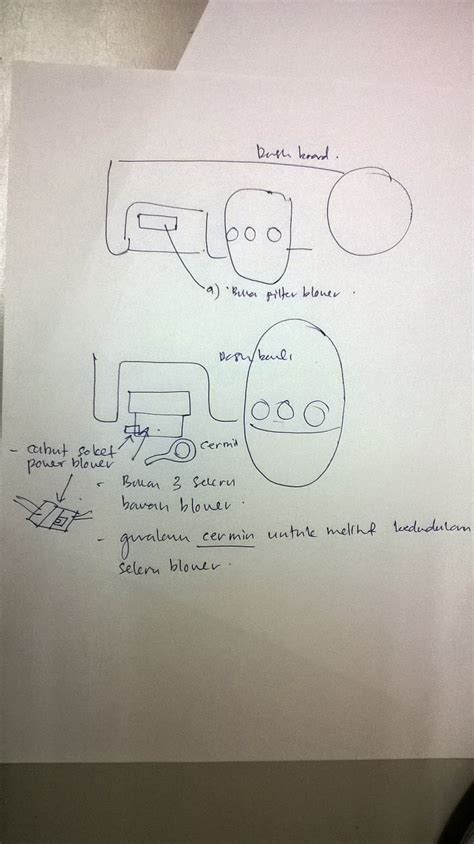 Dash board.
a) Buka filter blower.
Dash board
cermin
- cabut soket
power blower
- Buka 3 sekru
bawah blower.
- gunakan cermin untuk melihat kedudukan
sekru blower.